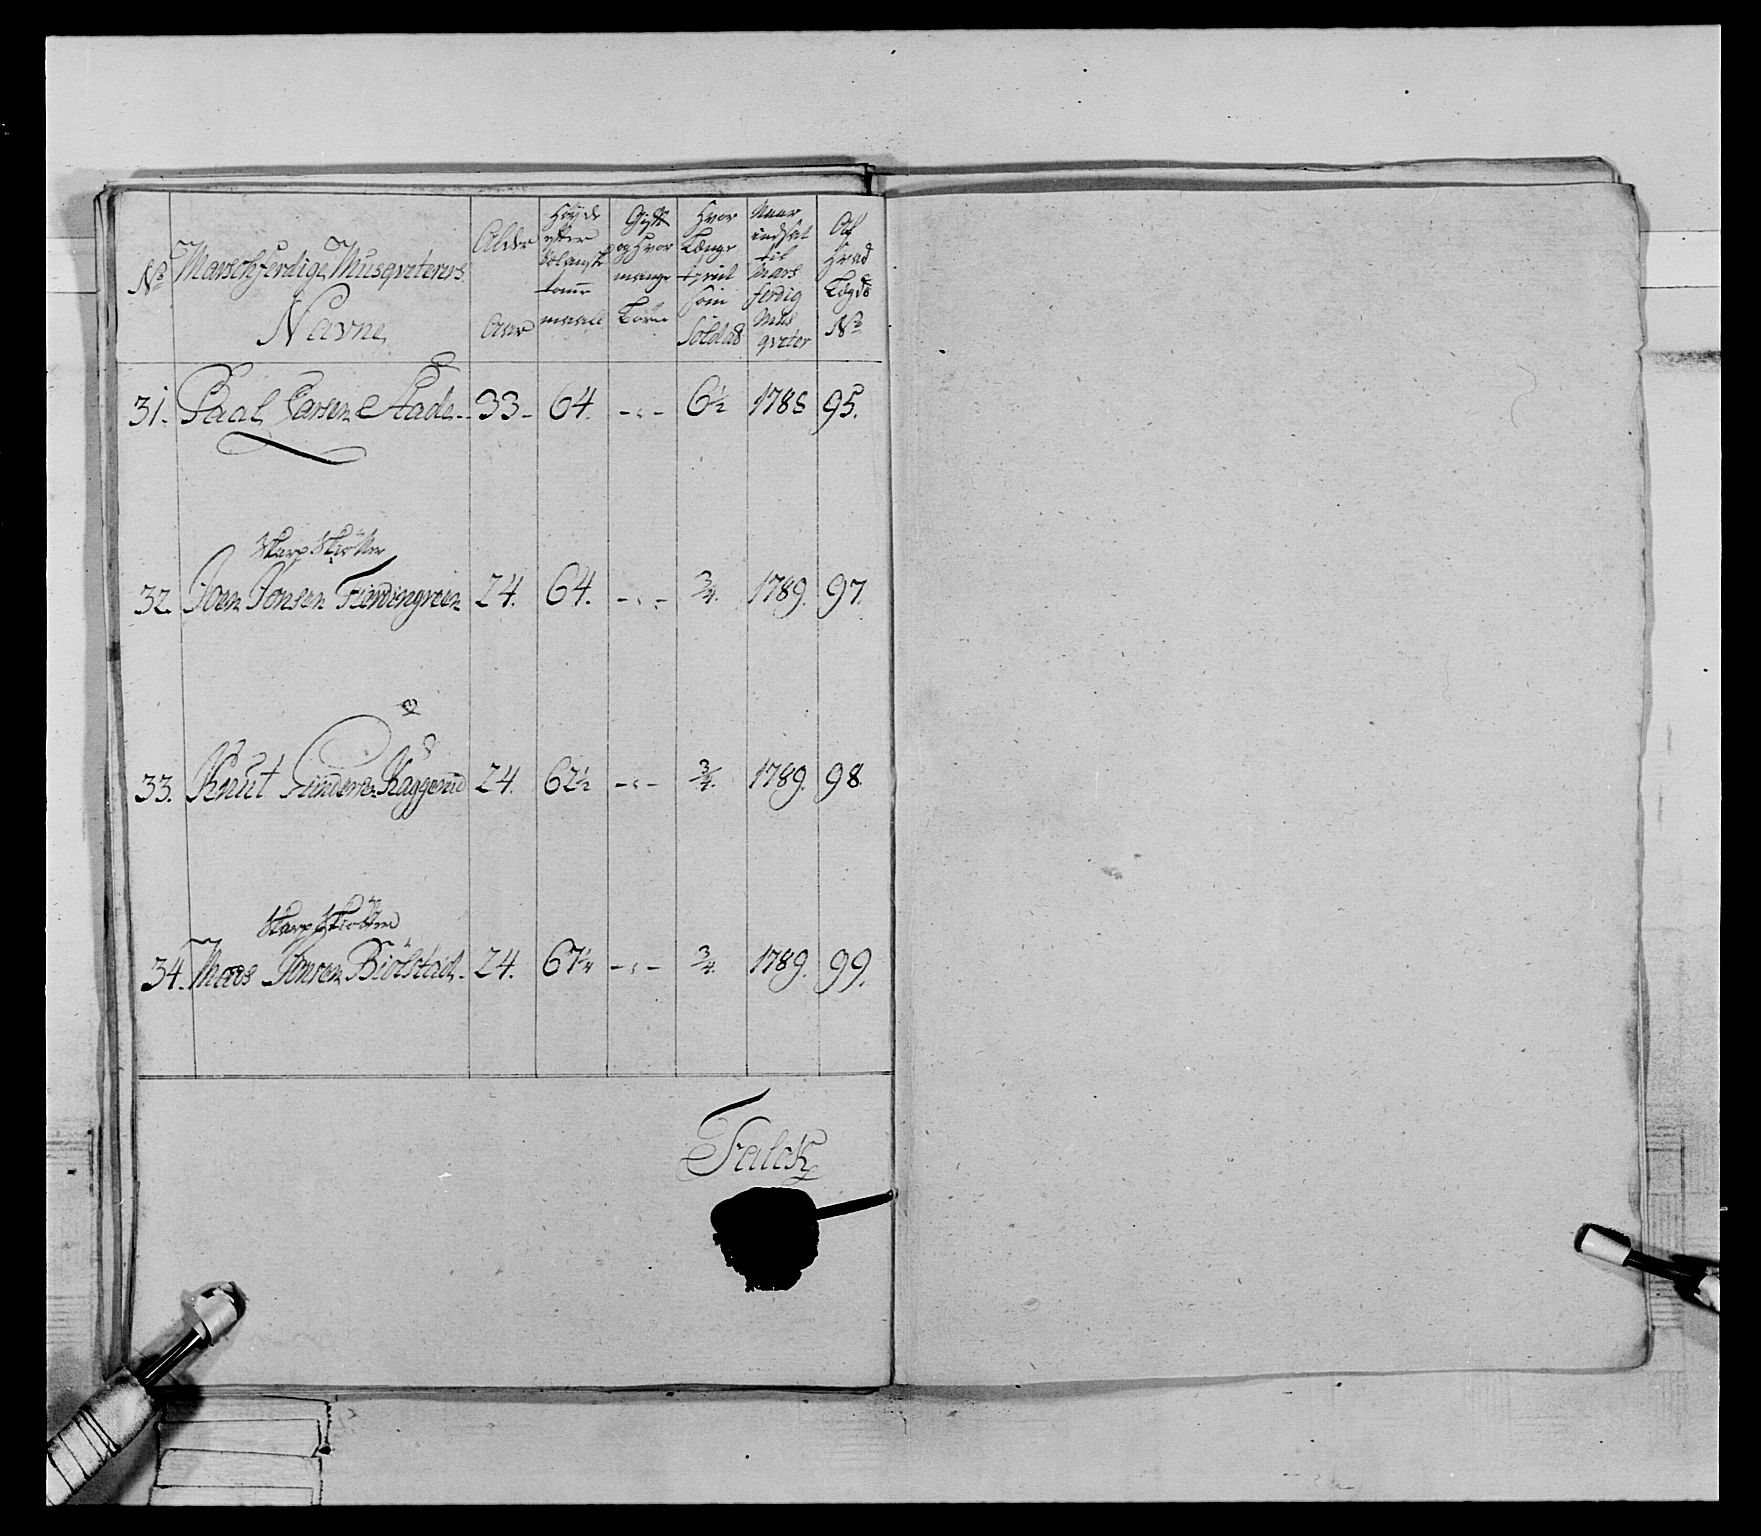 No Marschferdige Musqveterers Navne
Alder Aar
Høyde efter maall
Gift og Hvor mange Børn
Hvor Længe tient som Soldat
Naar indsat til Mars ferdig Mus qveter
Af Hvad Lægds No
31. Paal Larsen Stade - 33 - 64. - " - 6½ 1785 95.
Skarp Skiötter
32. Joen Jonsen 24. 64. - " - ¾. 1789. 97.
33. Knut Gunders. Kaggerud 24. 62½ - " - ¾. 1789. 98.
Skarp Skiötter
34. Jonsen Biölstad - 24. 67¼ - " - ¾. 1789. 99.
Falck